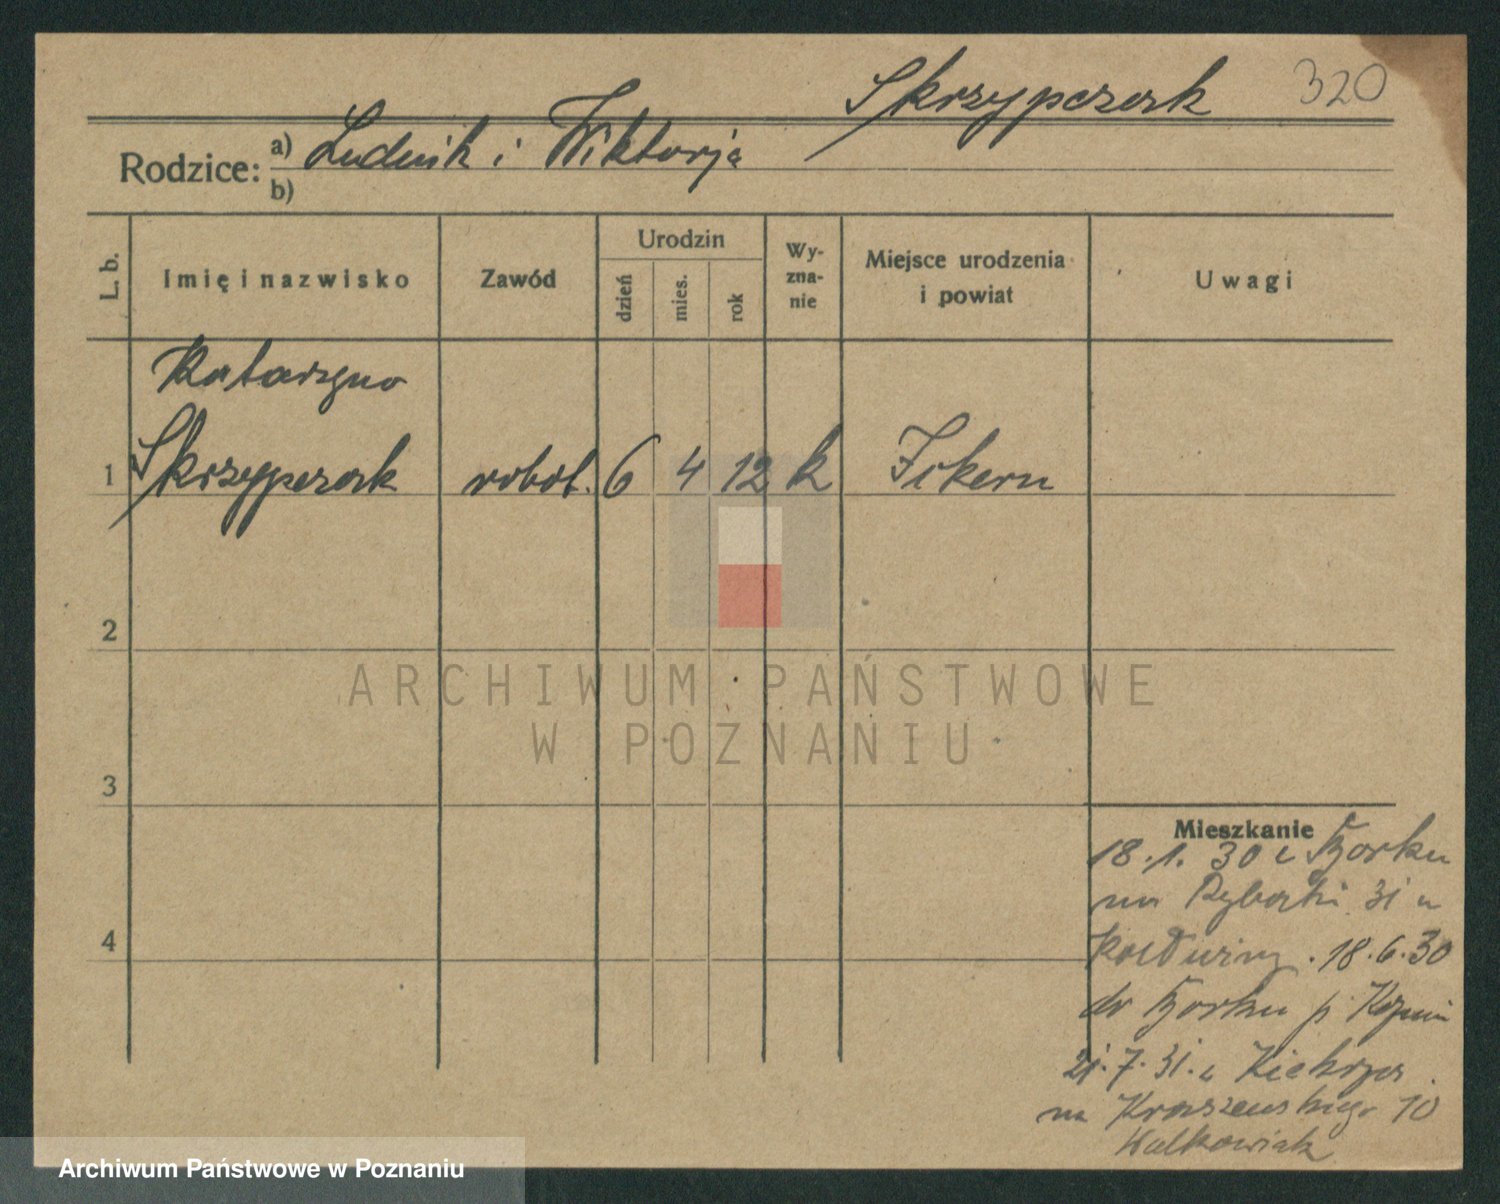 Skrzypczak 320
Rodzice: a) Ludwik i Wiktorja
b)
L. b. Imię i nazwisko Zawód Urodzin dzień mies. rok Wy-zna-nie Miejsce urodzenia i powiat Uwagi
Katarzyna
1 Skrzypczak robot. 6 4 12 k
2
3
4
ARCHIWUM PAŃSTWOWE
W POZNANIU
Mieszkanie
18.1.30 z Borku
na Rybaki 31 u
18.6.30
do Borku p.
21.7.31. z Kiekrza
na Kraszewskiego 10
Walkowiak
Archiwum Państwowe w Poznaniu